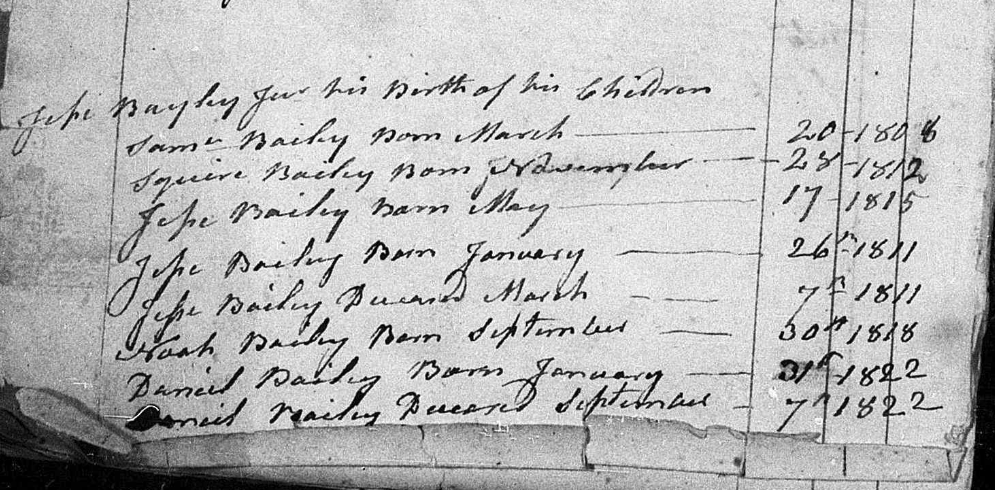 Jesse Bayley Jur his Birth of his Children
Saml Bailey Born March 20-1808
Squire Bailey Born November 28-1812
Jesse Bailey Born May 17-1815
Jesse Bailey Born January 26th-1811
Jesse Bailey Deceased March 7th 1811
Noah Bailey Born September 30th 1818
Daniel Bailey Born January 31st-1822
Daniel Bailey Deceased September 7th 1822